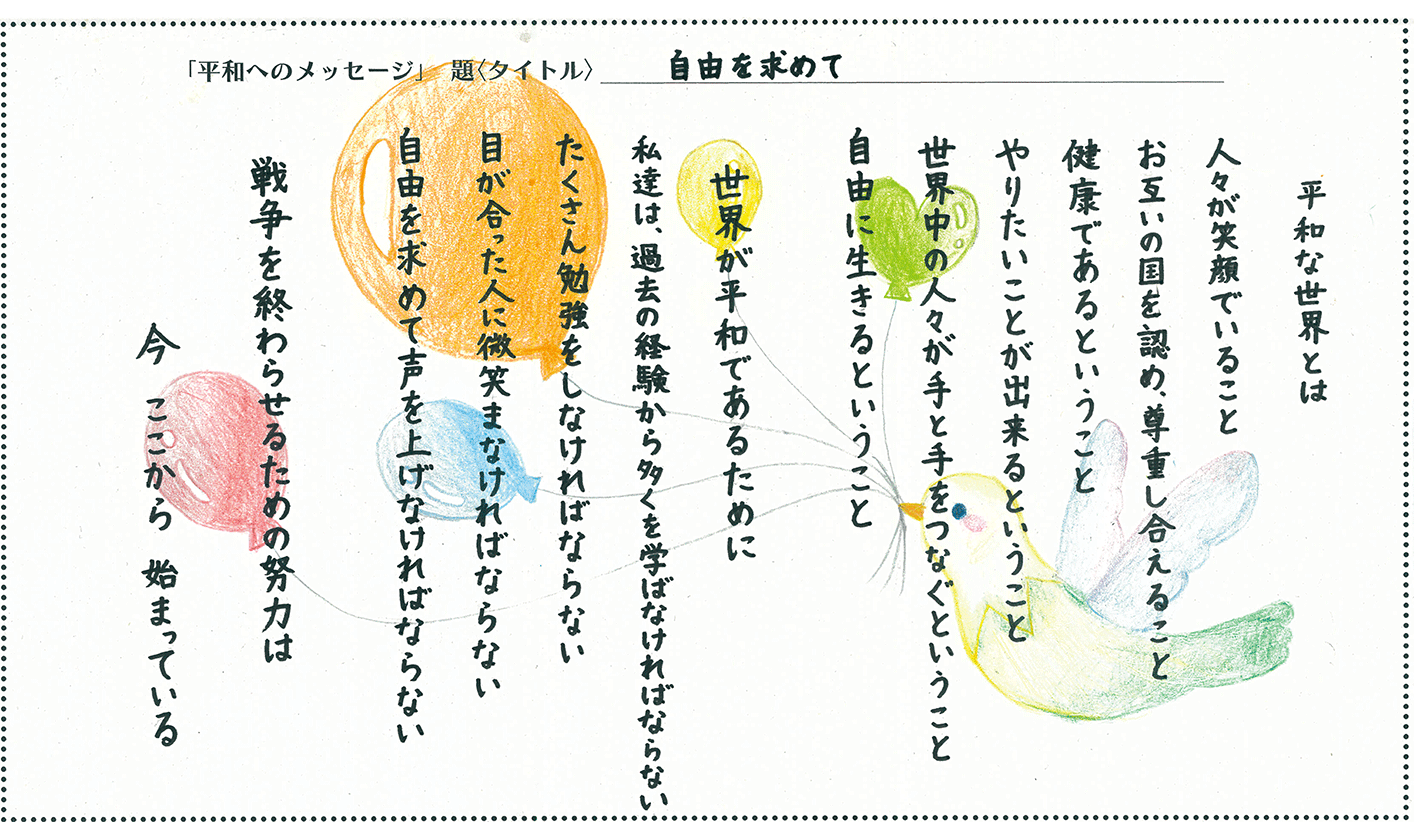 「平和へのメッセージ」 題〈タイトル〉 自由を求めて
平和な世界とは
人々が笑顔でいること
お互いの国を認め、尊重し合えること
健康であるということ
やりたいことが出来るということ
世界中の人々が手と手をつなぐということ
自由に生きるということ
世界が平和であるために
私達は、過去の経験から多くを学ばなければならない
たくさん勉強をしなければならない
目が合った人に微笑まなければならない
自由を求めて声を上げなければならない
戦争を終わらせるための努力は
今 ここから 始まっている